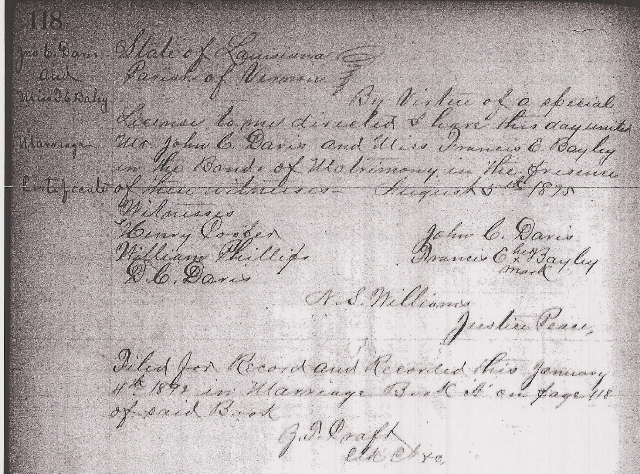 118
Jno C. Davis
and
Miss F. E. Bayley
Marriage
Certificate
State of Louisiana
Parish of Vermion
By Virtue of a special
License to me directed I have this day united
Mr John C. Davis and Miss Francis E. Bayley
in the Bonds of Matrimony in the presence
of these witnesses - August 5th
Witnesses
Henry Cooper
William Phillips
D. C. Davis
John C. Davis
Francis E. her x mark Bayley
N. S. Williams
Justice Peace,
Filed for Record and Recorded this January
4th in Marriage Book on page 118
of said Book
Clk